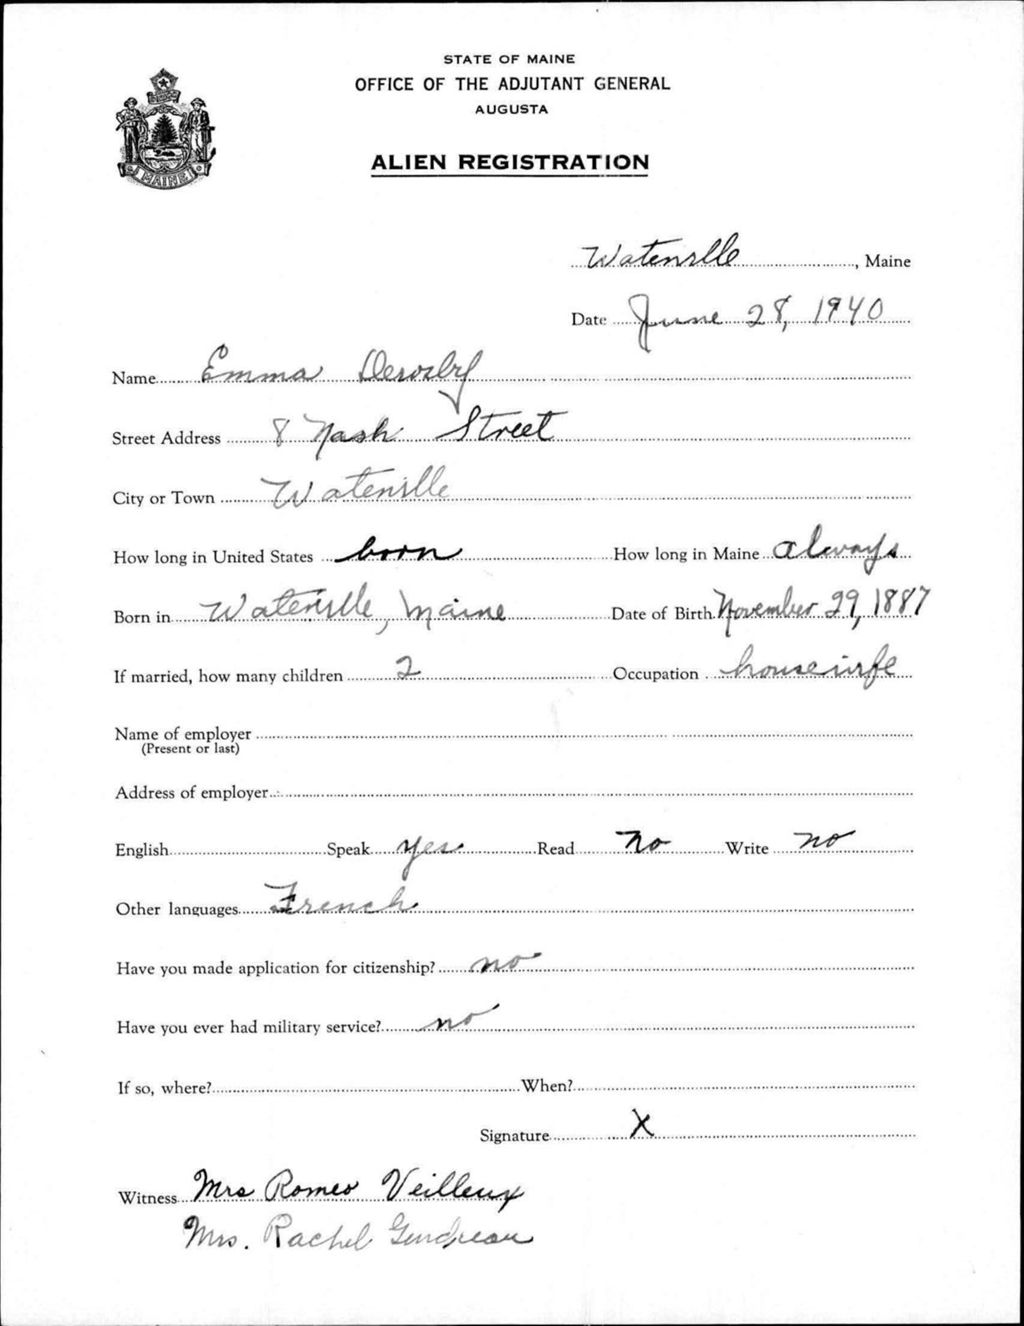 STATE OF MAINE
OFFICE OF THE ADJUTANT GENERAL
AUGUSTA
ALIEN REGISTRATION
MAINE
Waterville, Maine
Date June 28, 1940
Name Emma Derosby
Street Address 8 Nash Street
City or Town Waterville
How long in United States born How long in Maine always
Born in Waterville, Maine Date of Birth November 29, 1887
If married, how many children 2 Occupation housewife
Name of employer
(Present or last)
Address of employer
English Speak yes Read no Write no
Other languages French
Have you made application for citizenship? no
Have you ever had military service? no
If so, where? When?
Signature X
Witness Mrs Romeo Veilleux
Mrs. Rachel Gendreau